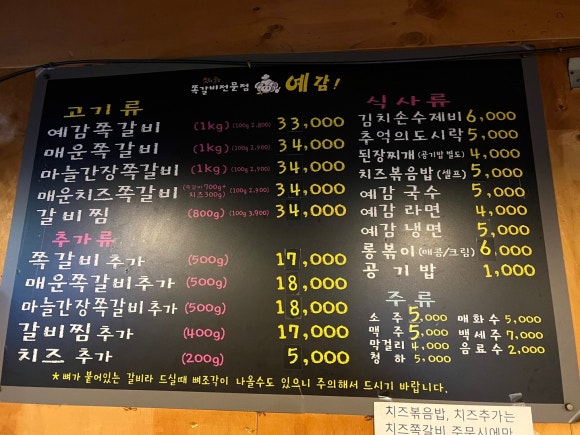 쪽갈비전문점 예감!
고기류
예감쪽갈비 (1kg) (100g 2,800) 33,000
매운쪽갈비 (1kg) (100g 2,900) 34,000
마늘간장쪽갈비 (1kg) (100g 2,900) 34,000
매운치즈쪽갈비 (쪽갈비700g+치즈300g) (100g 2,900) 34,000
갈비찜 (800g) (100g 3,900) 34,000
추가류
쪽갈비 추가 (500g) 17,000
매운쪽갈비추가 (500g) 18,000
마늘간장쪽갈비추가 (500g) 18,000
갈비찜 추가 (400g) 17,000
치즈 추가 (200g) 5,000
식사류
김치손수제비 6,000
추억의도시락 5,000
된장찌개 (공기밥 별도) 4,000
치즈볶음밥 (셀프) 5,000
예감 국수 5,000
예감 라면 4,000
예감 냉면 5,000
롱볶이 (매콤/크림) 6,000
공기밥 1,000
주류
소주 5,000 매화수 5,000
맥주 5,000 백세주 7,000
막걸리 4,000 음료수 2,000
청하 5,000
*뼈가 붙어있는 갈비라 드실때 뼈조각이 나올수도 있으니 주의해서 드시기 바랍니다.
치즈볶음밥, 치즈추가는
치즈쪽갈비 주문시에만